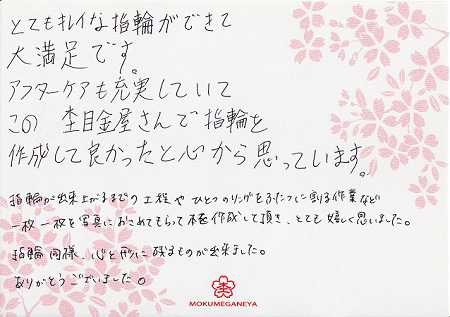 とてもキレイな指輪ができて
大満足です。
アフターケアも充実していて
この 杢目金屋さんで指輪を
作成して良かったと心から思っています。
指輪が出来上がるまでの工程や ひとつのリングをふたつに割る作業など
一枚一枚を写真におさめてもらって本を作成して頂き、とても嬉しく思いました。
指輪同様、心と形に残るものが出来ました。
ありがとうございました。
MOKUMEGANEYA